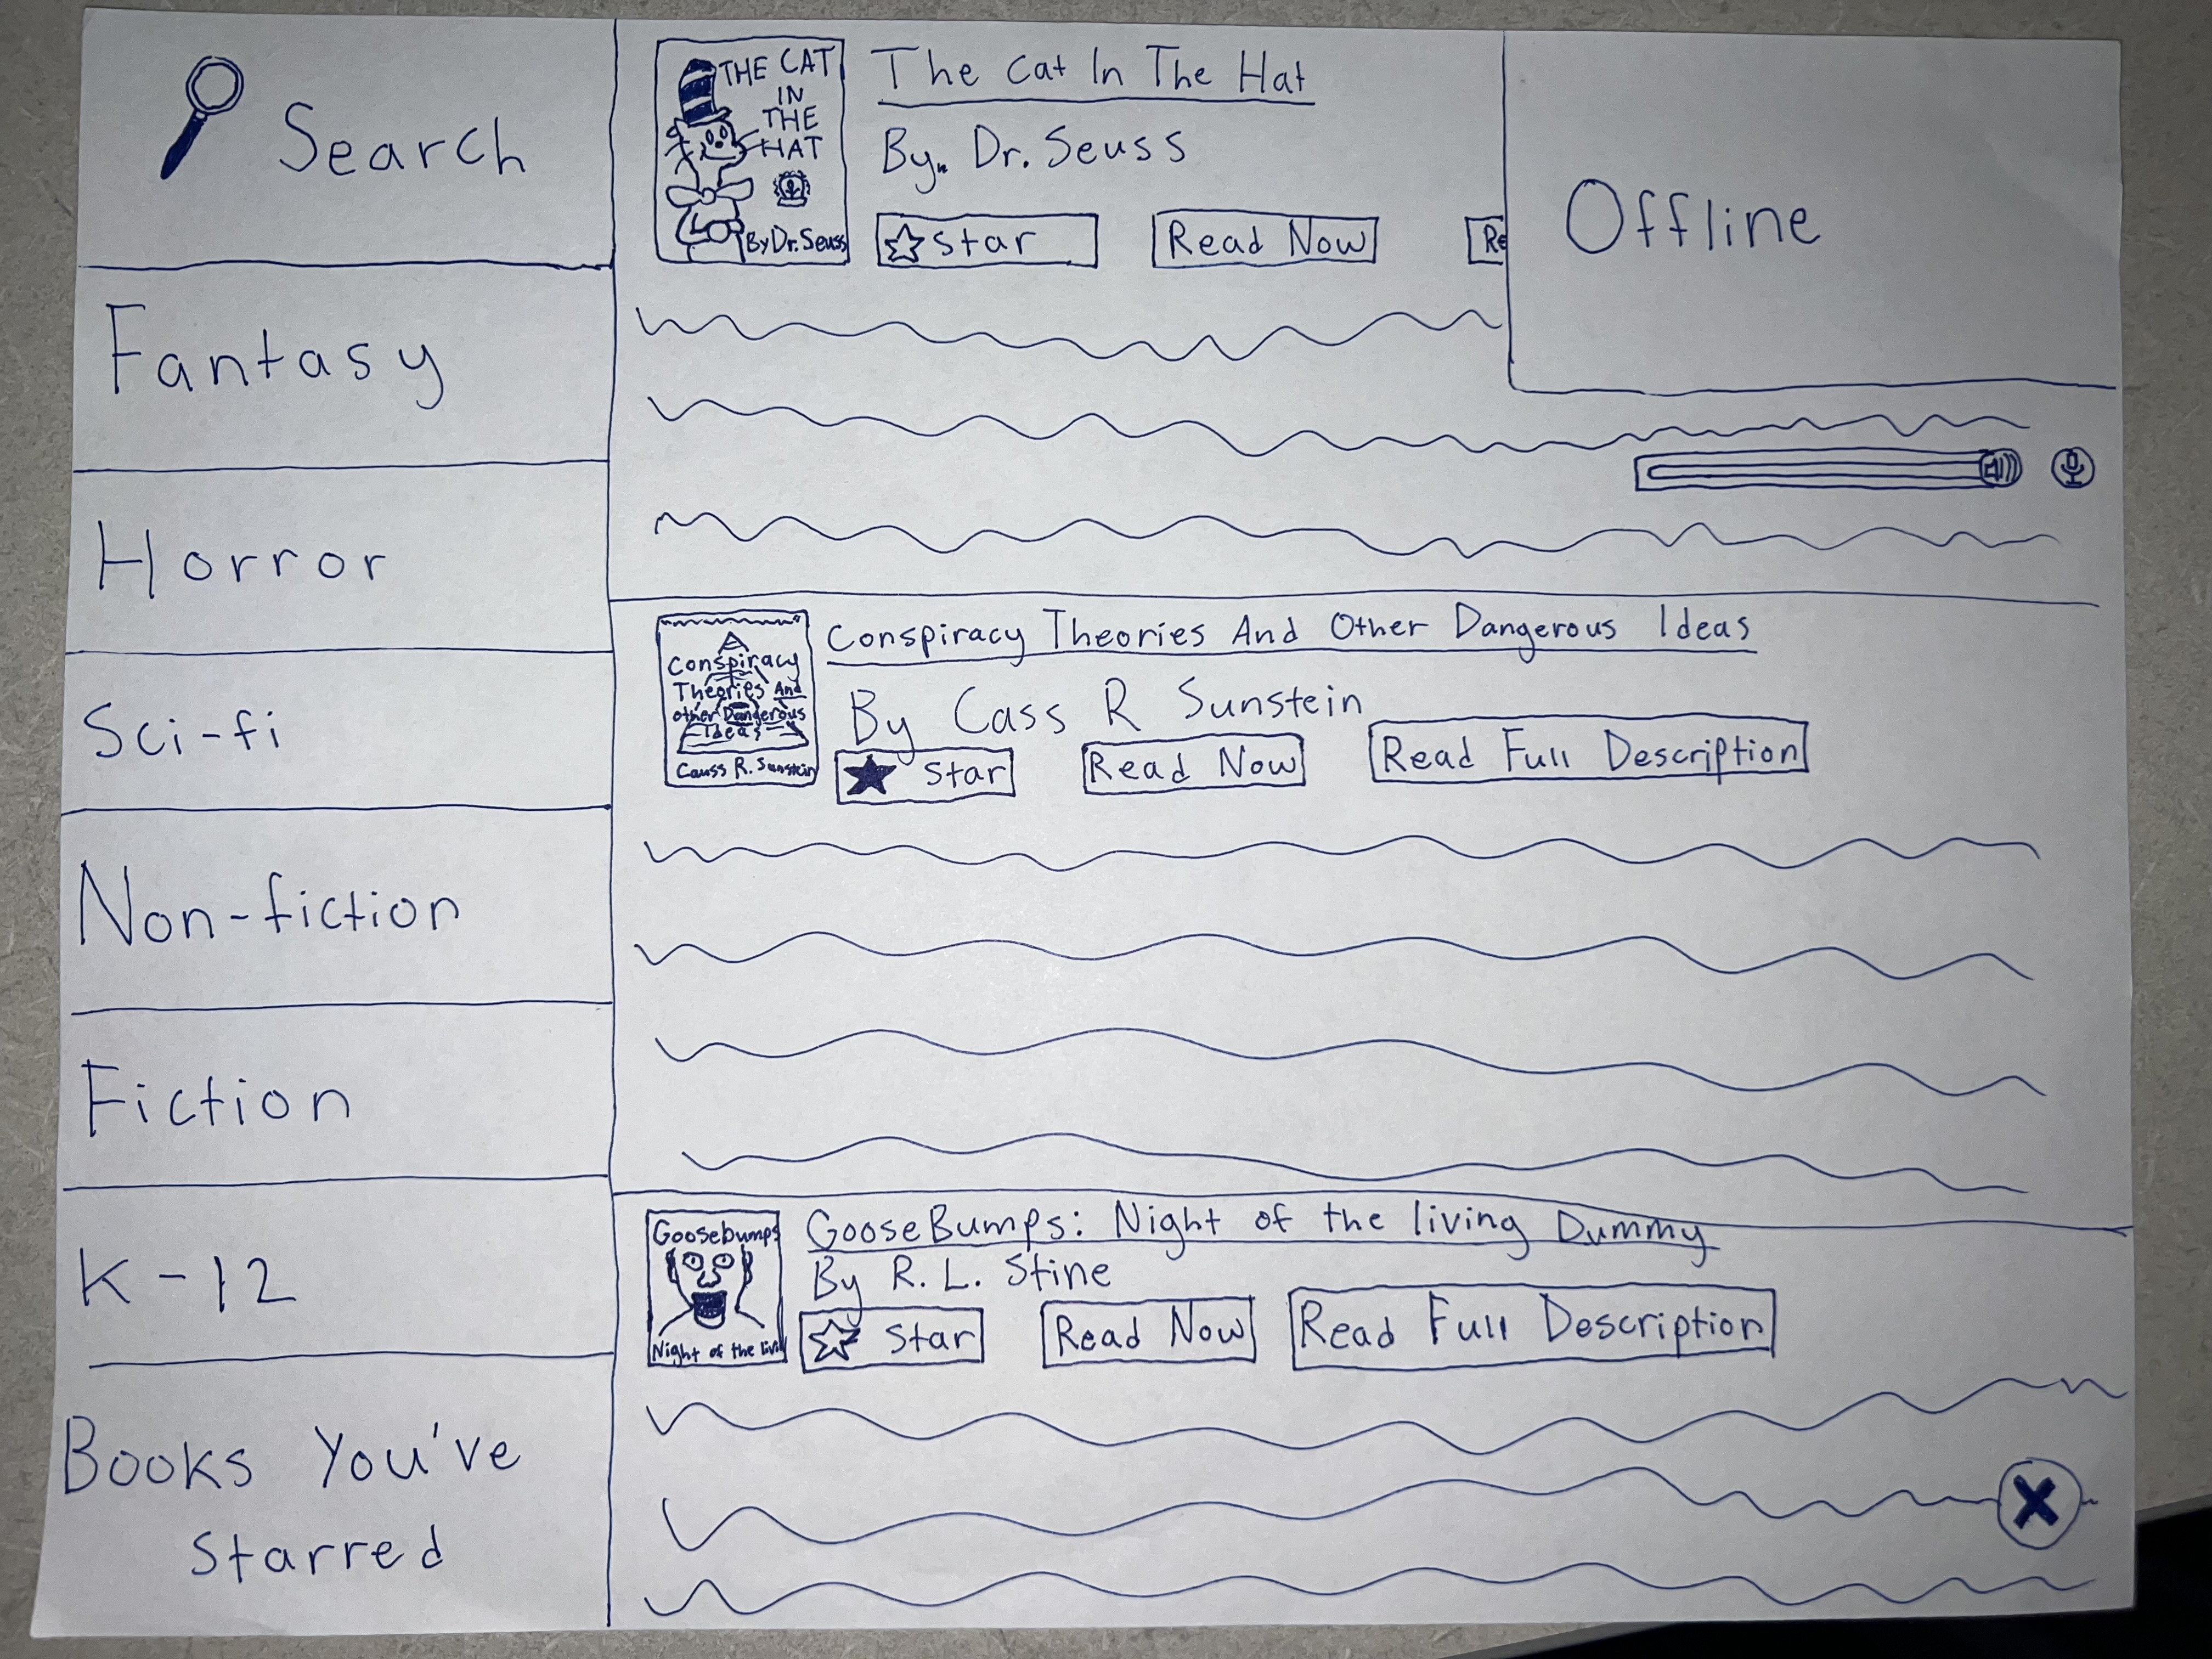 Search
Fantasy
Horror
Sci-fi
Non-fiction
Fiction
K-12
Books You've
Starred
THE CAT
IN
THE
HAT
By Dr. Seuss
The Cat In The Hat
By, Dr. Seuss
Star
Read Now
Re
Offline
Conspiracy
Theories And
other Dangerous
Ideas
Conspiracy Theories And Other Dangerous Ideas
By Cass R Sunstein
Star
Read Now
Read Full Description
Goosebumps
Night of the
GooseBumps: Night of the living Dummy
By R.L. Stine
Star
Read Now
Read Full Description